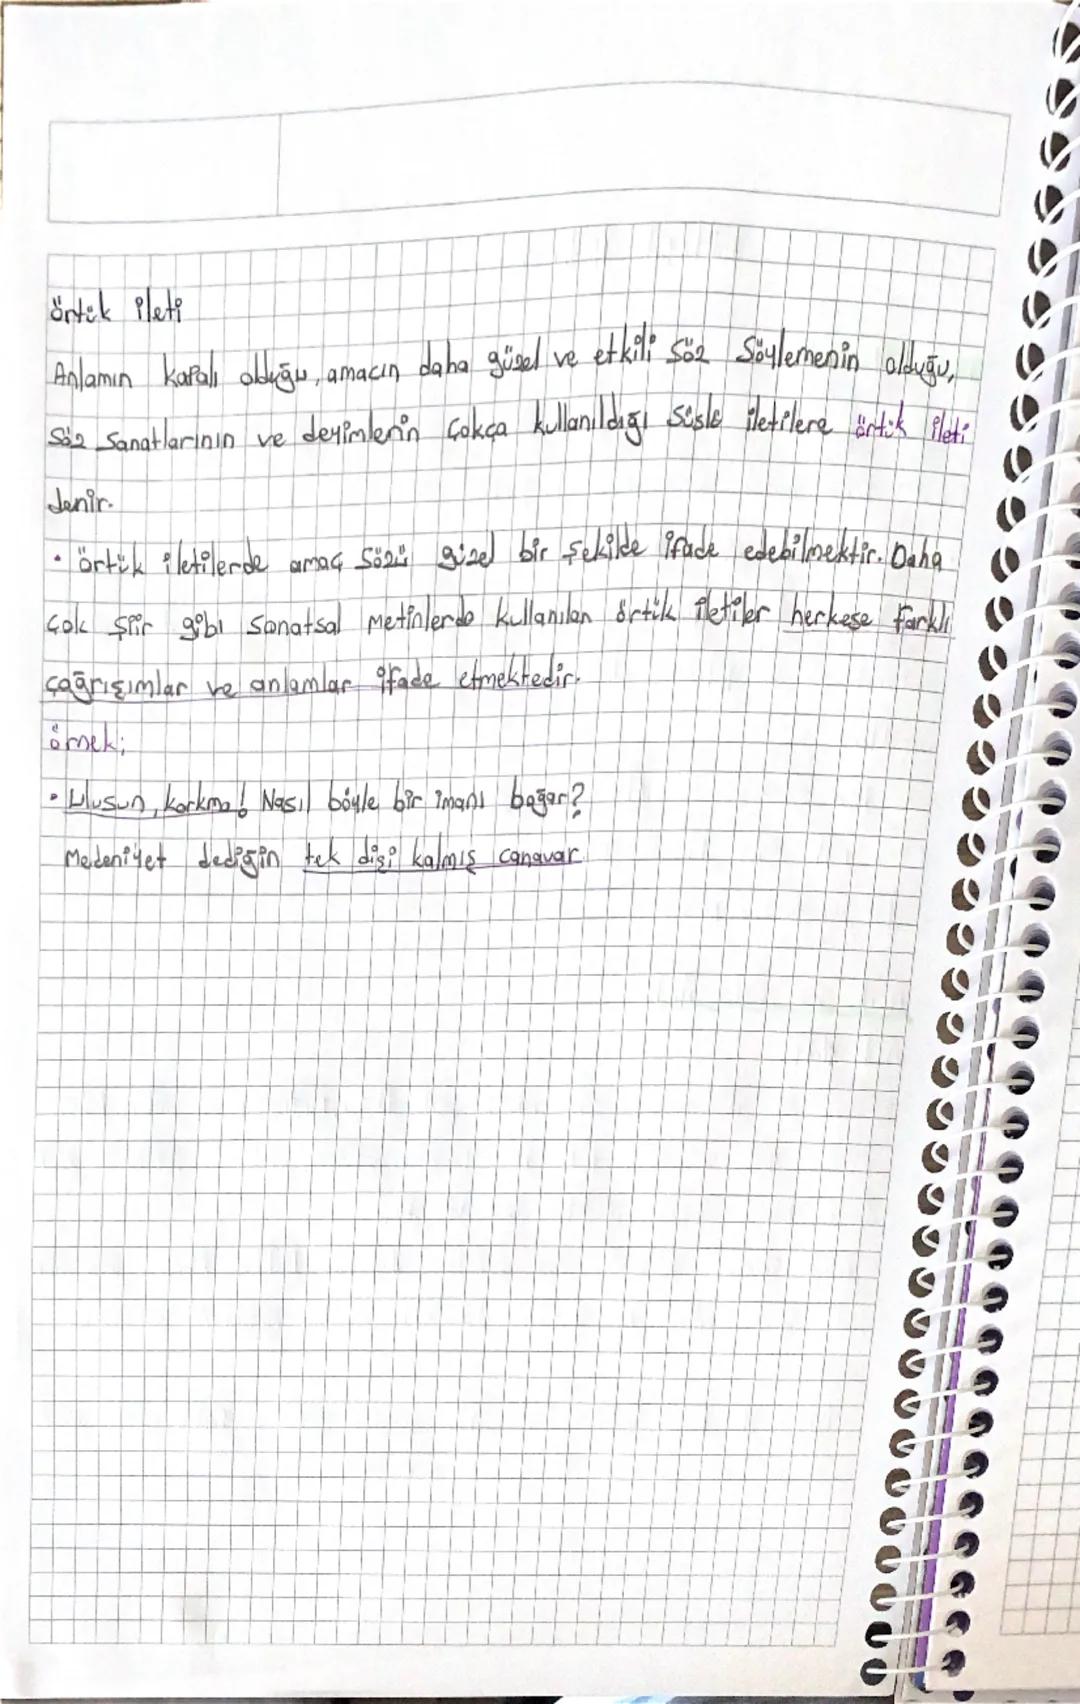 örtük ileti
Anlamın kapalı olduğu, amacın daha güzel ve etkili söz söylemenin olduğu,
söz sanatlarının ve deyimlerin çokça kullanıldığı süslü iletilere örtük ileti
denir.
• örtük iletilerde amaç sözü güzel bir şekilde ifade edebilmektir. Daha
çok şiir gibi sanatsal metinlerde kullanılan örtük iletiler herkese farklı
çağrışımlar ve anlamlar ifade etmektedir.
örnek;
• Ulusun, korkma! Nasıl böyle bir imanı boğar?
Medeniyet dediğin tek dişi kalmış canavar